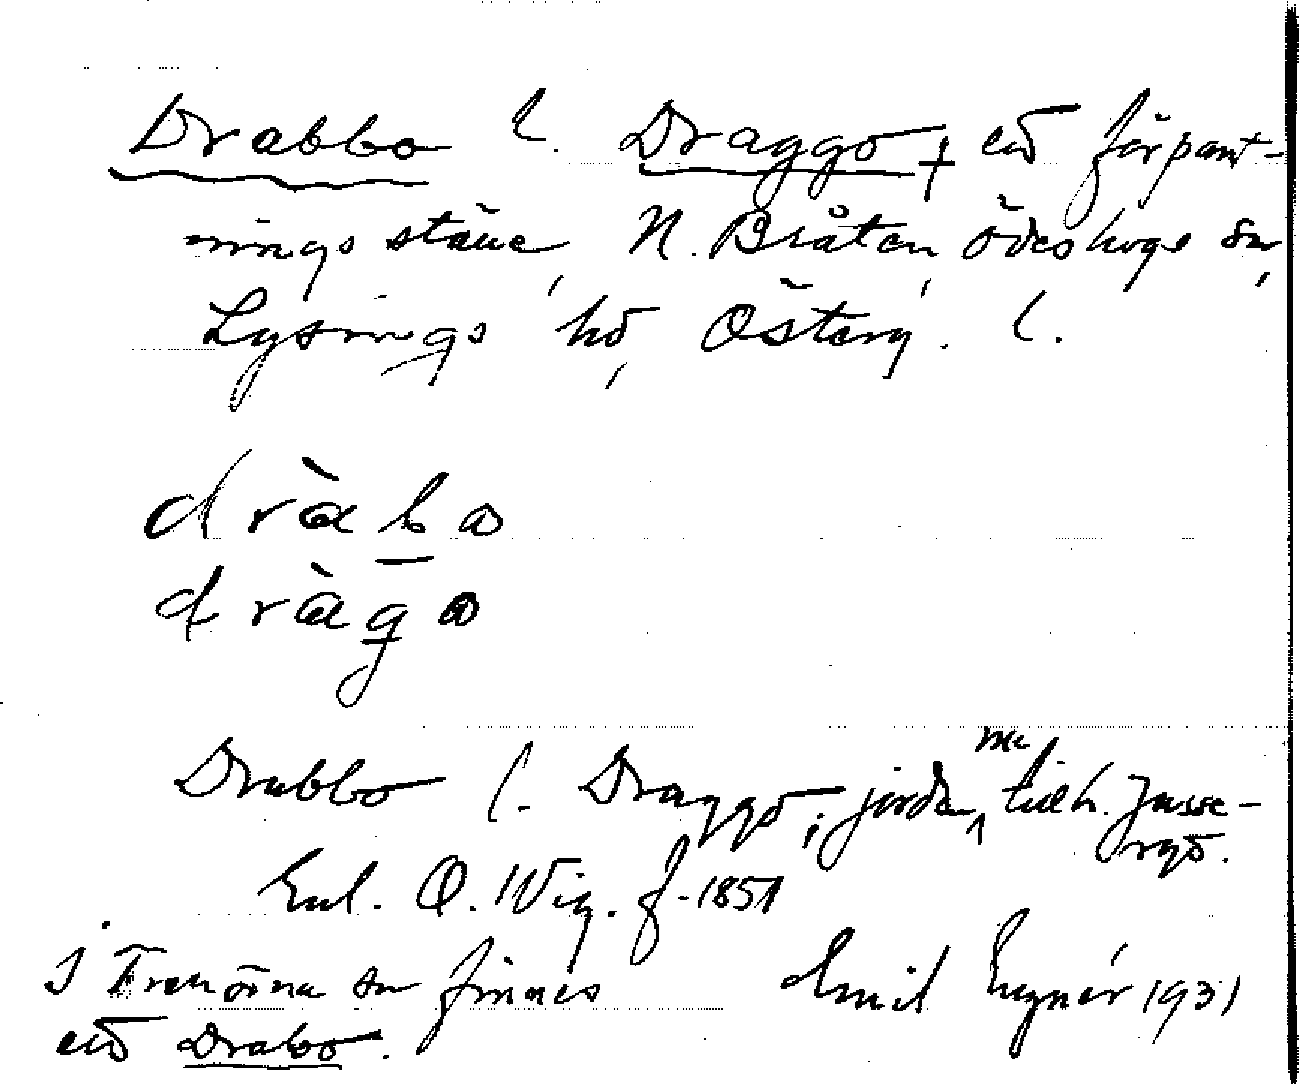 Drabbo l. Draggo, ett förpant-
nings ställe, N. Bråten, Ödeshögs sn,
Lysings hd, Österg. l.
dràbo
dràgo
Drabbo l. Draggo, jorden nu tillh. Jusse-
ryd.
Enl. O. Wig. f. 1851
I Trehörna sn finnes
ett Drabo.
Emil 1931